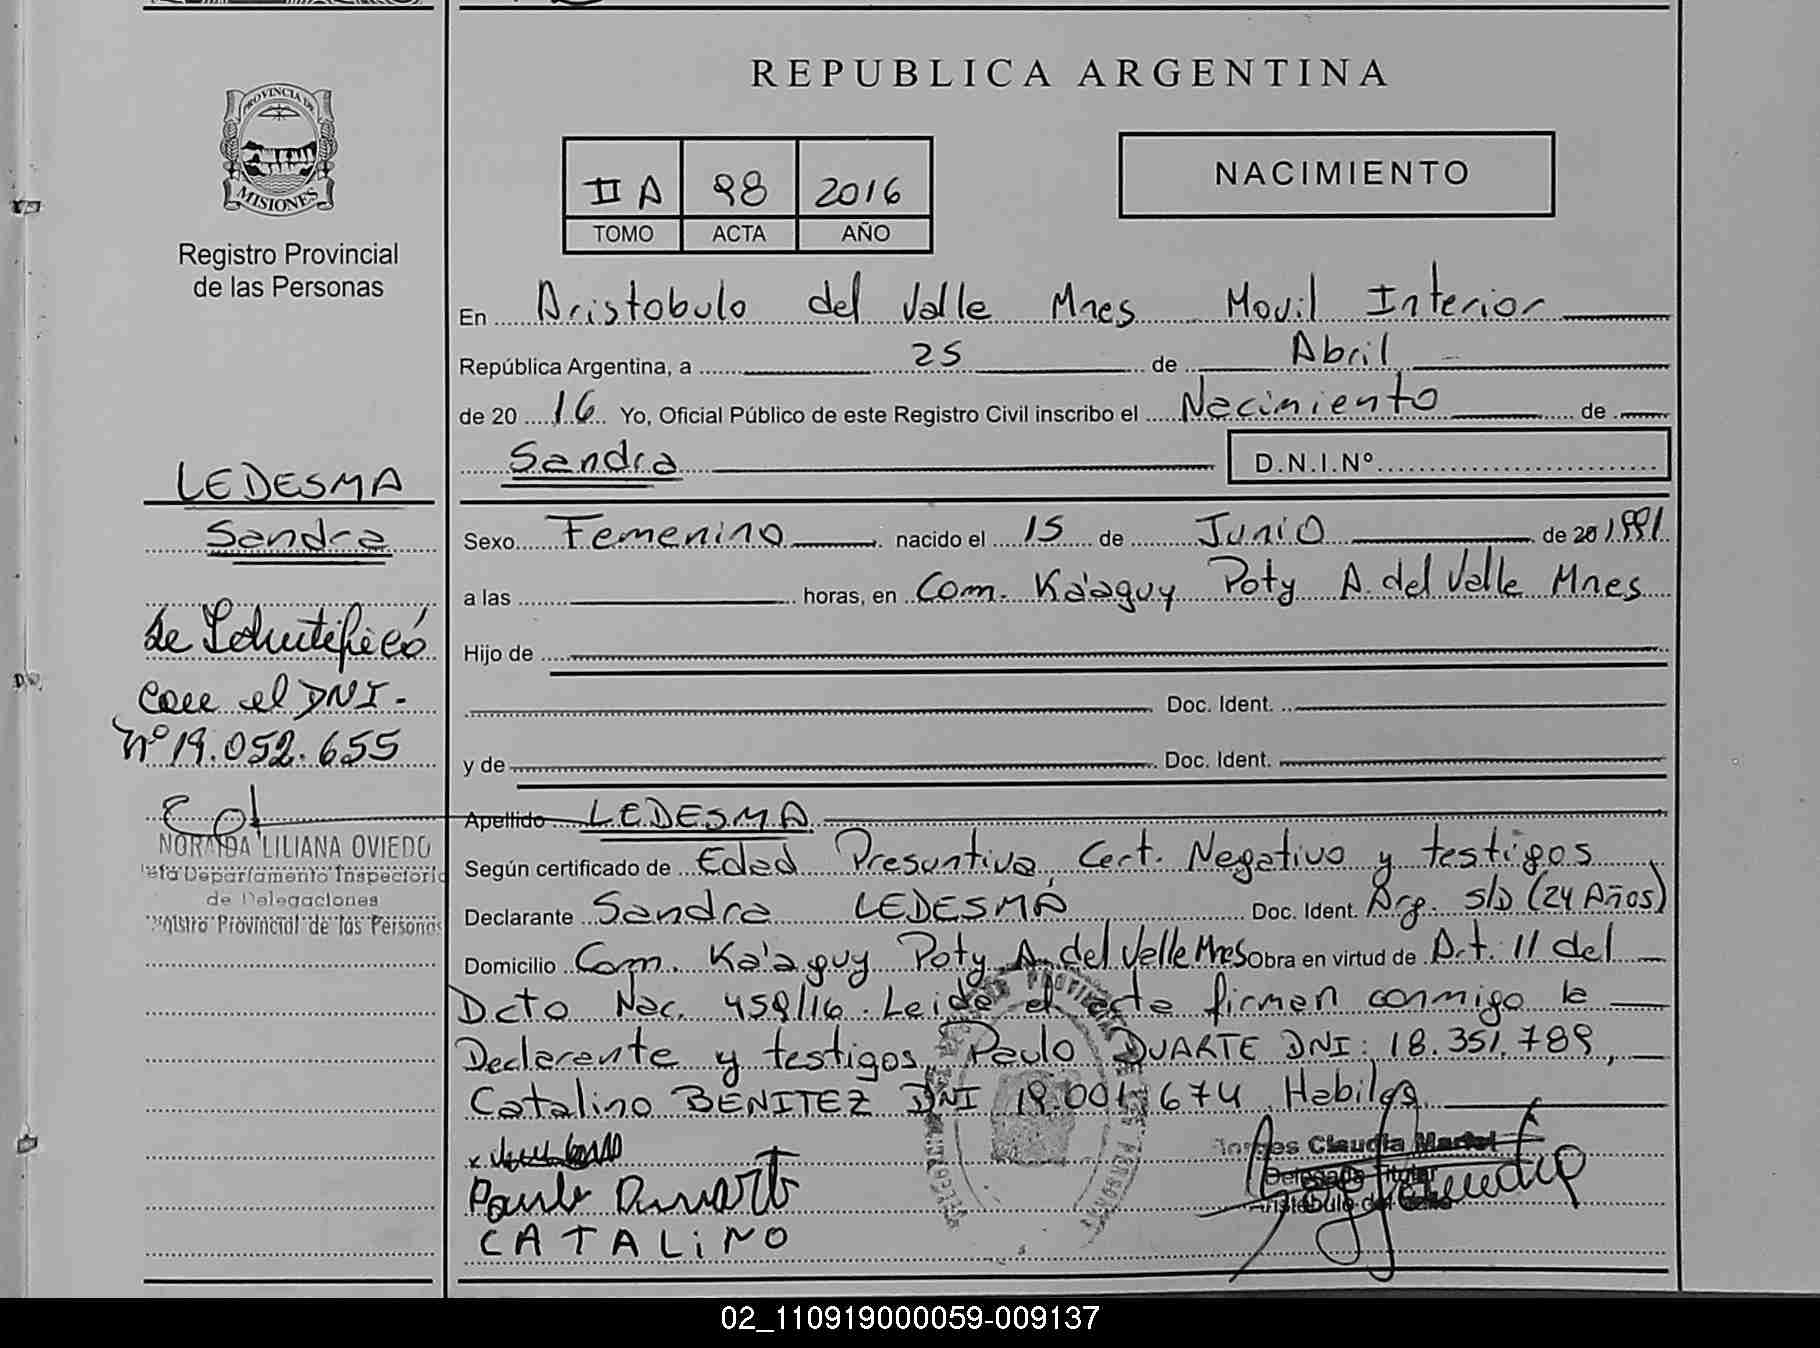 REPUBLICA ARGENTINA
PROVINCIA DE
MISIONES
Registro Provincial
de las Personas
II A 98 2016
TOMO ACTA AÑO
NACIMIENTO
En Aristobulo del Valle Mnes Movil Interior
República Argentina, a 25 de Abril
de 20 16 Yo, Oficial Público de este Registro Civil inscribo el Nacimiento de
Sandra D.N.I.Nº
Sexo Femenino nacido el 15 de Junio de 20 1991
a las horas, en Com. Ka'aguy Poty A. del Valle Mnes
Hijo de
Doc. Ident.
y de Doc. Ident.
Apellido LEDESMA
Según certificado de Edad Presuntiva, Cert. Negativo y testigos
Declarante Sandra LEDESMA Doc. Ident. Arg. S/D (24 Años)
Domicilio Com. Ka'aguy Poty A. del Valle Mnes Obra en virtud de Art. 11 del
Dcto Nac. 459/16. Leida el acta firman conmigo la
Declarante y testigos Paulo DUARTE DNI: 18.351.789,
Catalino BENITEZ DNI 19.001.674 Habiles
Paulo Duarte
CATALINO
Claudia Mariel
Delegada Titular
Aristobulo del Valle
LEDESMA
Sandra
Se Identificó
con el DNI-
Nº 19.052.655
NORAIDA LILIANA OVIEDO
Departamento Inspectoria
de Delegaciones
Registro Provincial de las Personas
02_110919000059-009137